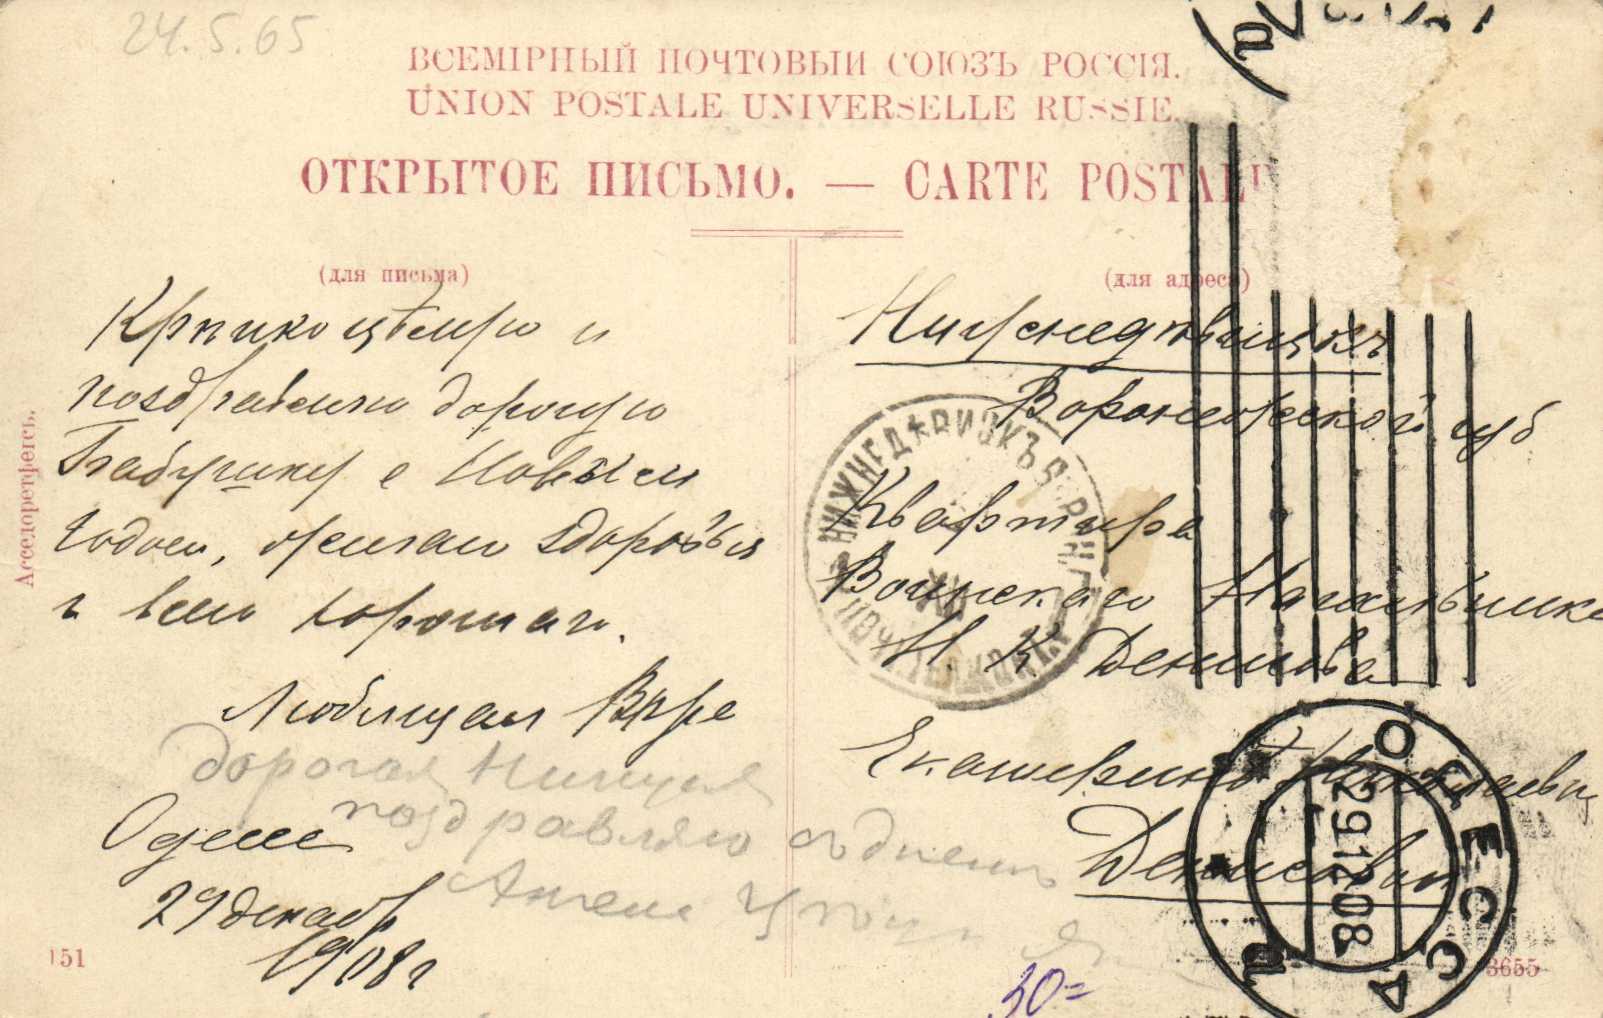 24.5.65
ВСЕМІРНЫЙ ПОЧТОВЫЙ СОЮЗЪ РОССІЯ.
UNION POSTALE UNIVERSELLE RUSSIE.
ОТКРЫТОЕ ПИСЬМО. — CARTE POSTALE
(для письма)
Крпико цѣлую и
поздравляю дорогую
Бабушку с Новым
годом, желаю здоровья
и всего хорошаго.
Любящая
Дорогая
поздравляю съ днемъ
Ангела
Одесса
29 декабр
1908 г
Асседоретфегсъ.
151
(для адреса)
Нижнедѣвицкъ
Воронежской губ
Квартира
Воинскаго Начальника
Н. К. Денисова
Екатерине Николаевн
Денисовой
НИЖНЕДѢВИЦКЪ ВОРОН. Г.
XII
ОДЕССА
29 12 08
а
а
3655
30=